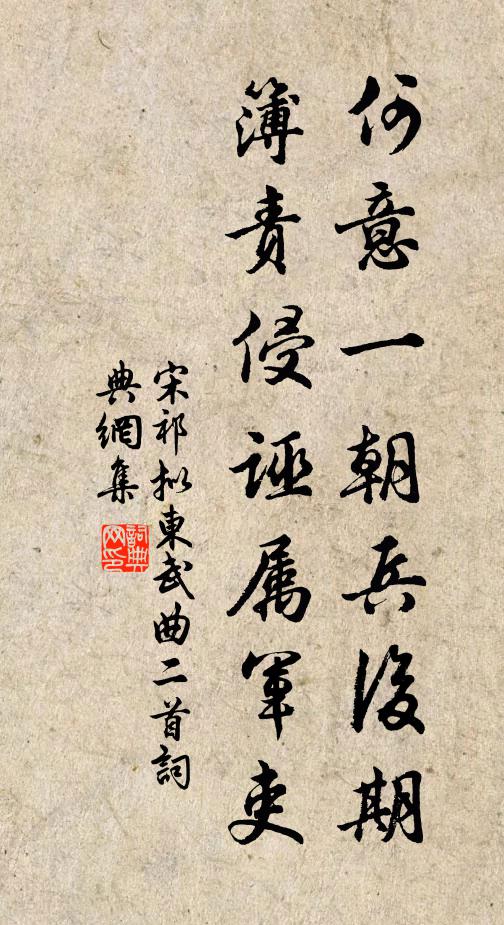 何意一朝兵後期
簿責侵誣属軍吏
宋祁拟東武曲二首詞
典網集
詞典
网印